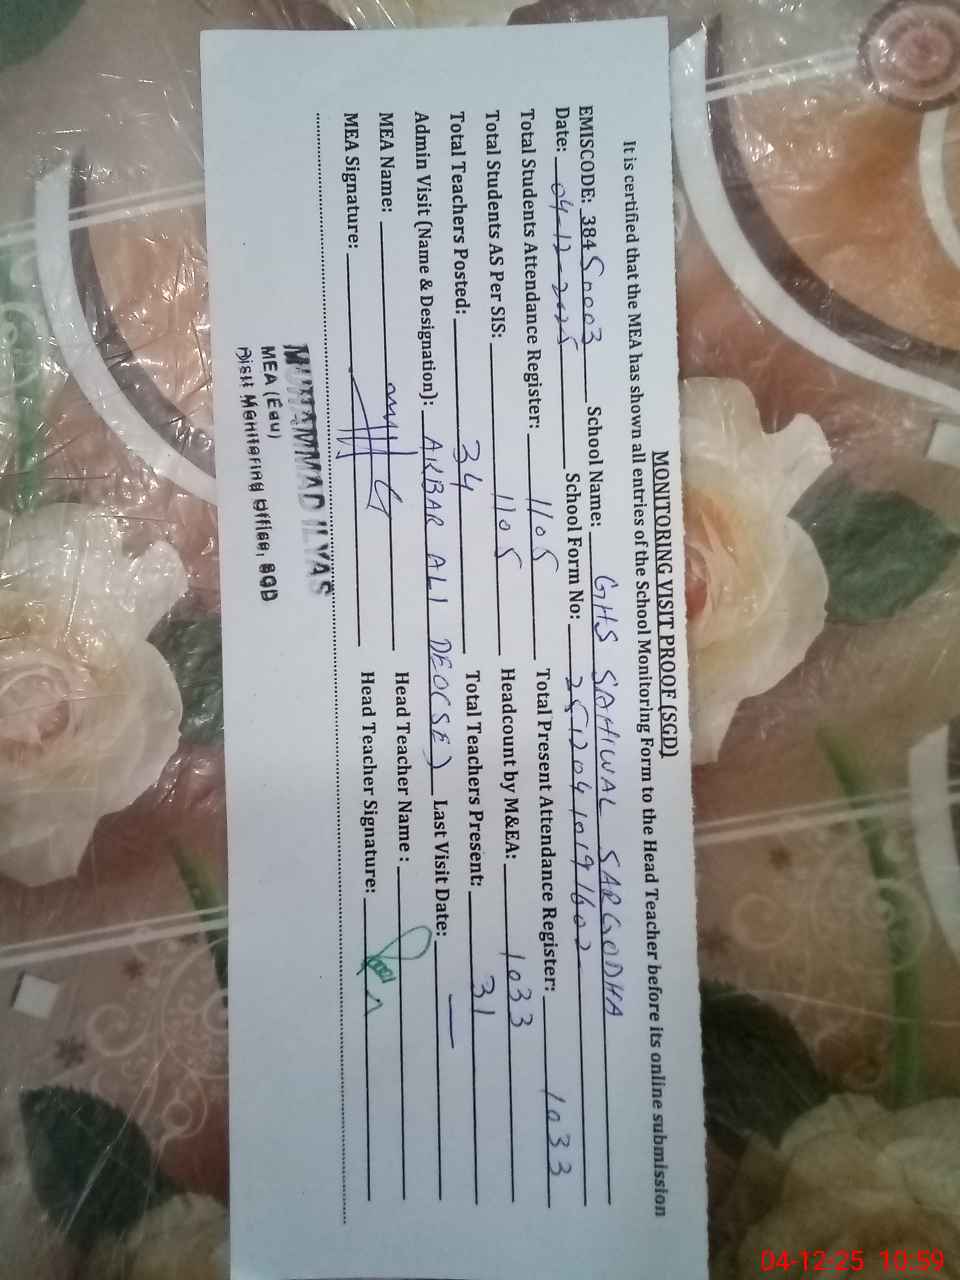 MONITORING VISIT PROOF (SGD)
It is certified that the MEA has shown all entries of the School Monitoring Form to the Head Teacher before its online submission
EMISCODE: 38450003 School Name: GHS SAHIWAL SARGODHA
Date: 04-12-2025 School Form No: 25120410191602
Total Students Attendance Register: 1105 Total Present Attendance Register: 1033
Total Students AS Per SIS: 1105 Headcount by M&EA: 1033
Total Teachers Posted: 34 Total Teachers Present: 31
Admin Visit (Name & Designation): AKBAR ALI DEO(SE) Last Visit Date: —
MEA Name: Head Teacher Name :
MEA Signature: Head Teacher Signature:
MUHAMMAD ILYAS
MEA (Edu)
Distt Monitoring Office, SGD
04-12-25 10:59